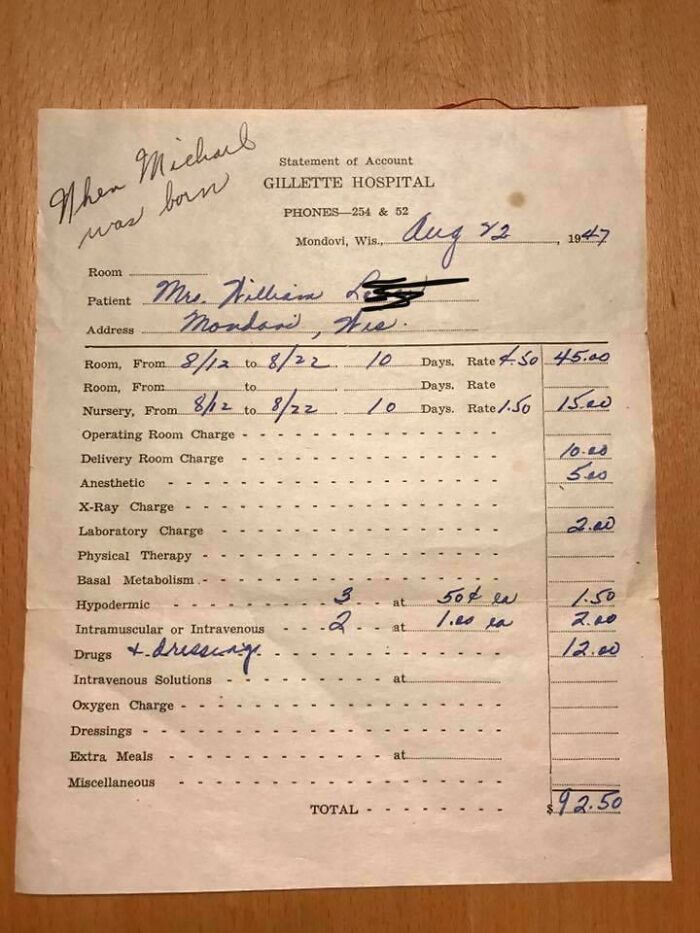 When Michael
was born
Statement of Account
GILLETTE HOSPITAL
PHONES—254 & 52
Mondovi, Wis., Aug 22, 1947
Room
Patient Mrs. William
Address Mondovi, Wis.
Room, From 8/12 to 8/22 10 Days. Rate 4.50 45.00
Room, From to Days. Rate
Nursery, From 8/12 to 8/22 10 Days. Rate 1.50 15.00
Operating Room Charge
Delivery Room Charge 10.00
Anesthetic 5.00
X-Ray Charge
Laboratory Charge 2.00
Physical Therapy
Basal Metabolism
Hypodermic 3 at 50¢ ea 1.50
Intramuscular or Intravenous 2 at 1.00 ea 2.00
Drugs + dressings 12.00
Intravenous Solutions at
Oxygen Charge
Dressings
Extra Meals at
Miscellaneous
TOTAL $92.50